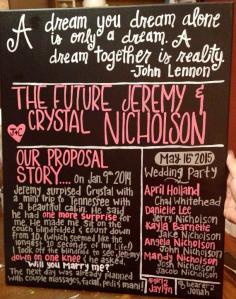 A dream you dream alone
is only a dream. A
dream together is reality.
-John Lennon
THE FUTURE JEREMY &
CRYSTAL NICHOLSON
J+C
OUR PROPOSAL
STORY.... On Jan. 9th 2014
Jeremy surprised Crystal with
a mini trip to Tennessee with
a beautiful cabin. He said
he had one more surprise for
me. He made me sit on the
couch blindfolded & count down
from 10. (which seemed like the
longest 10 seconds of my life!)
I took off the blindfold to see Jeremy
down on one knee & he asked,
Will you Marry me?
The next day was already planned
with couple massages, facial, pedi & mani!
May 16th 2015
Wedding Party
April Holland
Chad Whitehead
Danielle Lee
Jars Nicholson
Kayla Barnelle
Angela Nicholson
John Nicholson
Mandy Nicholson
Josh Nicholson
Jacob Nicholson
Jaylyn
Jonah